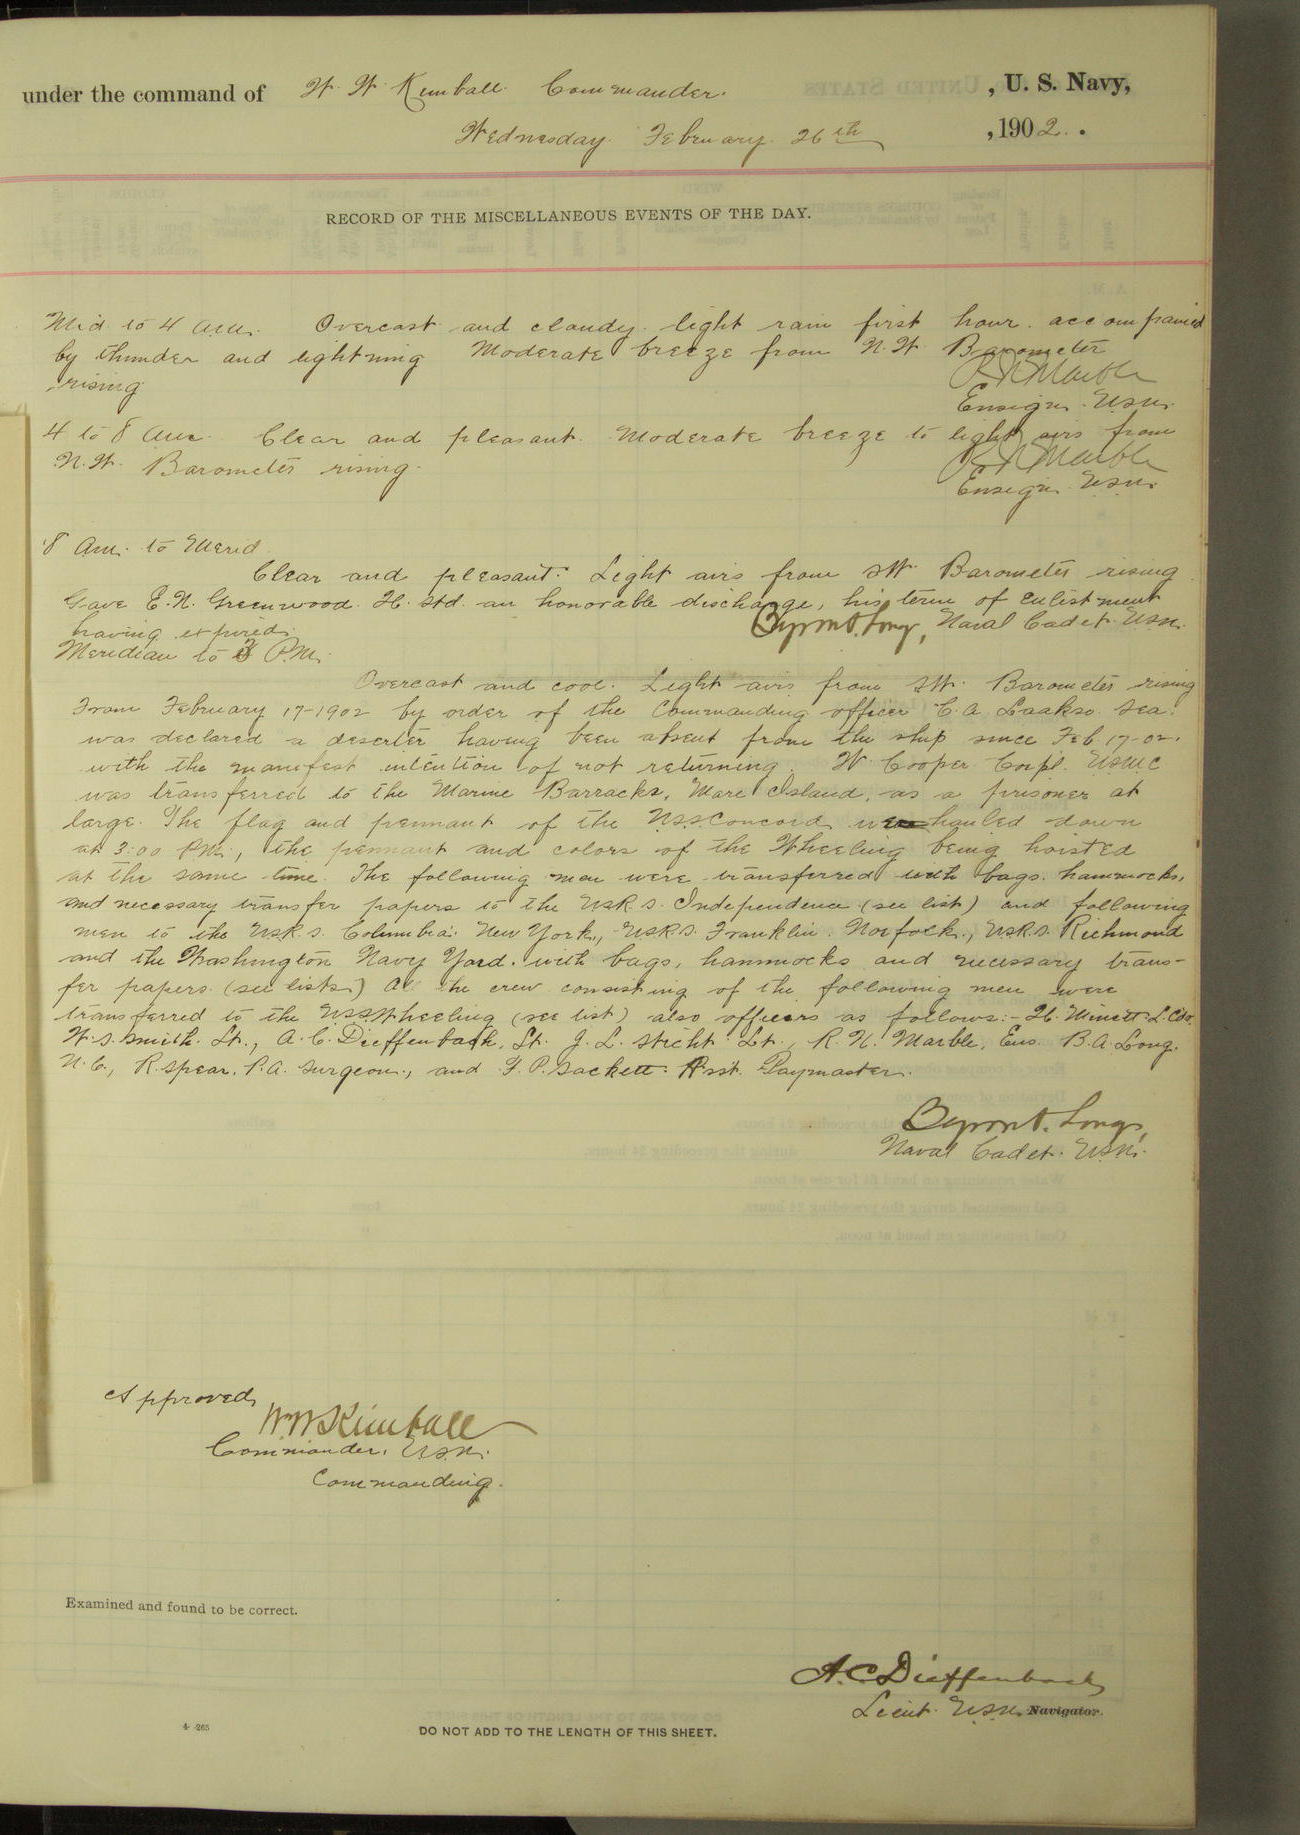 under the command of W. W. Kimball. Commander. , U. S. Navy,
Wednesday. February. 26th , 1902.
RECORD OF THE MISCELLANEOUS EVENTS OF THE DAY.
Mid. to 4 a.m. Overcast and cloudy. light rain first hour. accompanied
by thunder and lightning Moderate breeze from N.W. Barometer
rising
R N Marble
Ensign. U.S.N.
4 to 8 a.m. Clear and pleasant. Moderate breeze to light airs from
N.W. Barometer rising.
R N Marble
Ensign. U.S.N.
8 Am. to Merid.
Clear and pleasant. Light airs from SW. Barometer rising
Gave E.N. Greenwood. H. Std. an honorable discharge, his term of enlistment
having expired.
Byron A. Long, Naval Cadet. U.S.N.
Meridian to 3 P.M.
Overcast and cool. Light airs from SW. Barometer rising
From February 17-1902 by order of the Commanding officer C. A. Laakso. Sea.
was declared a deserter having been absent from the ship since Feb. 17-02.
with the manifest intention of not returning. W. Cooper Corpl. USMC
was transferred to the Marine Barracks, Mare Island, as a prisoner at
large. The flag and pennant of the U.S.S. Concord were hauled down
at 3:00 P.M., the pennant and colors of the Wheeling being hoisted
at the same time. The following men were transferred with bags, hammocks,
and necessary transfer papers to the U.S.R.S. Independence (see list) and following
men to the U.S.R.S. Columbia. New York, U.S.R.S. Franklin. Norfolk, U.S.R.S. Richmond
and the Washington Navy Yard. with bags, hammocks and necessary trans-
fer papers (see lists) All the crew consisting of the following men were
transferred to the U.S.S. Wheeling (see list) also officers as follows:- H. Minett L.Cdr.
W. S. Smith. Lt., A. C. Dieffenbach, Lt. J. L. Sticht Lt., R. N. Marble, Ens. B.A. Long.
N.C., R. Spear. P.A. Surgeon., and F. P. Sackett. Asst. Paymaster.
Byron A. Long,
Naval Cadet. U.S.N.
Approved,
W W Kimball
Commander, U.S.N.
Commanding.
Examined and found to be correct.
A. C. Dieffenbach
Lieut. U.S.N. Navigator.
4-265
DO NOT ADD TO THE LENGTH OF THIS SHEET.